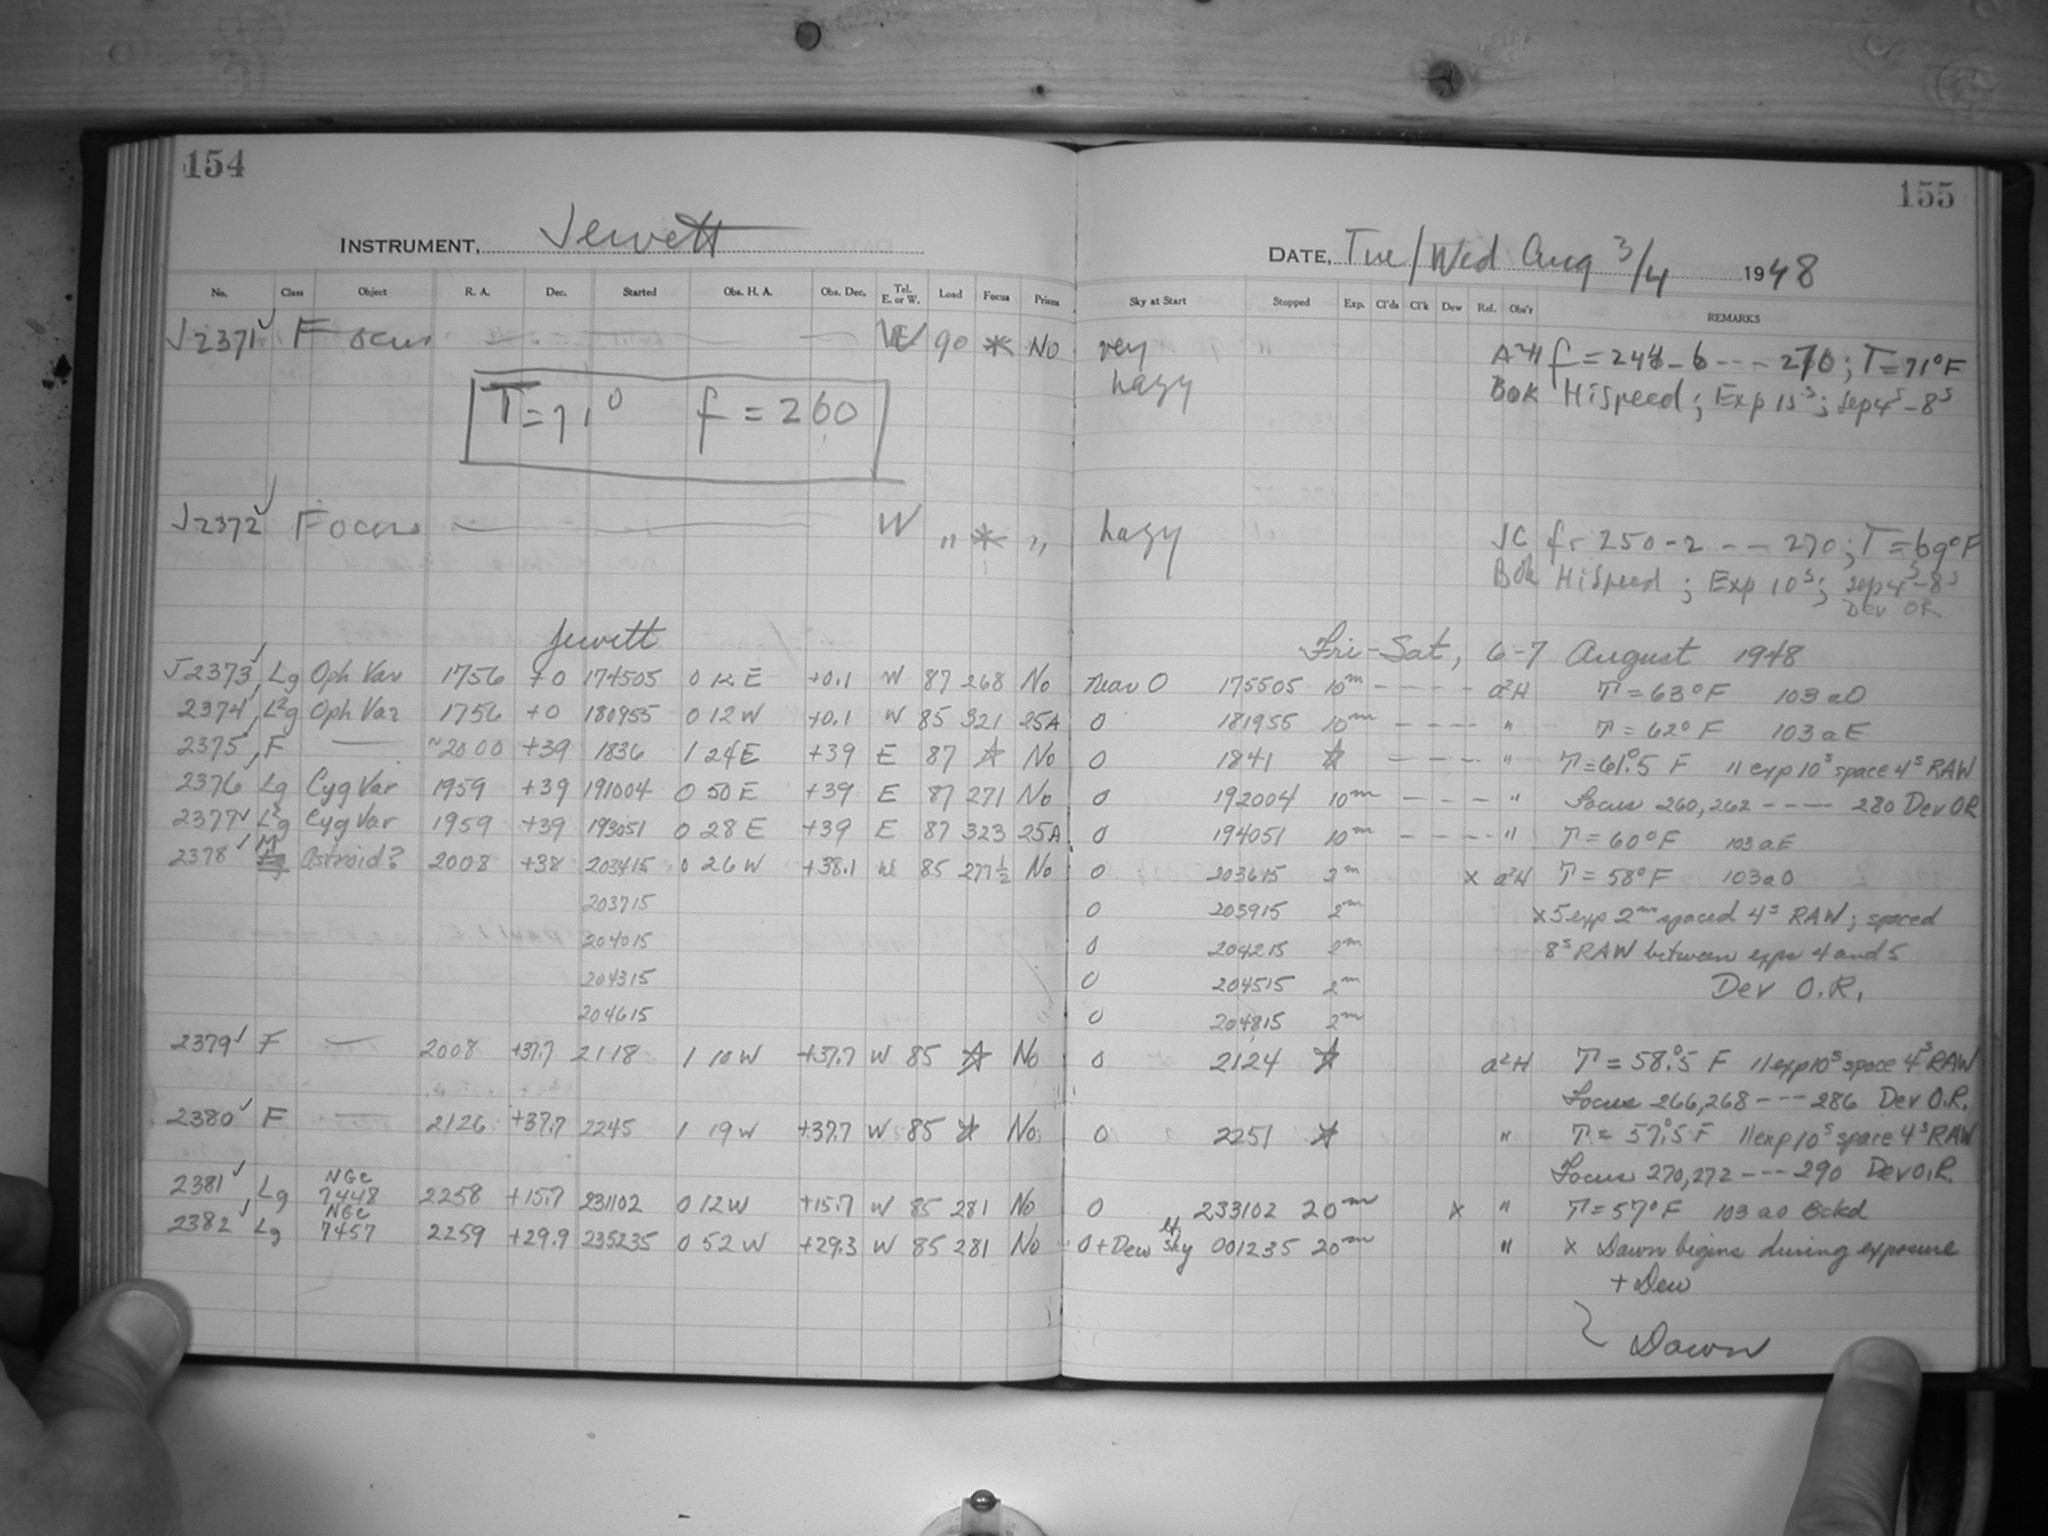 154
155
INSTRUMENT, Jewett
DATE, Tue/Wed Aug 3/4 1948
No. Class Object R. A. Dec. Started Obs. H. A. Obs. Dec. Tel. E. or W. Load Focus Prism Sky at Start Stopped Exp. Cl'ds Cl'k Dew Ref. Obs'r REMARKS
J2371 ✓ Focus W 90 * No very hazy A²H f = 244-6 --- 270; T=71°F
BOK HiSpeed; Exp 15ˢ; sep 4ˢ-8ˢ
T=71° f = 260
J2372 ✓ Focus W " * " hazy JC f = 250-2 --- 270; T=69°F
BOK HiSpeed; Exp 10ˢ; sep 4ˢ-8ˢ
Dev OR
Jewett Fri-Sat, 6-7 August 1948
J2373 ✓ Lg Oph Var 1756 +0 174505 0 12 E +0.1 W 87 268 No near 0 175505 10ᵐ - - - - a²H T = 63°F 103 aO
2374 ✓ L²g Oph Var 1756 +0 180955 0 12 W +0.1 W 85 321 25A 0 181955 10ᵐ - - - - " T = 62°F 103 aE
2375 ✓ F — ~2000 +39 1836 1 24 E +39 E 87 ☆ No 0 1841 ☆ - - - - " T = 61°.5 F 11 exp 10ˢ space 4ˢ RAW
2376 Lg Cyg Var 1959 +39 191004 0 50 E +39 E 87 271 No 0 192004 10ᵐ - - - " Focus 260,262 ---- 280 Dev OR
2377 ✓ L²g Cyg Var 1959 +39 193051 0 28 E +39 E 87 323 25A 0 194051 10ᵐ - - - - " T = 60°F 103 aE
2378 ✓ M Astroid? 2008 +38 203415 0 26 W +38.1 W 85 277½ No 0 203615 2ᵐ x a²H T = 58°F 103aO
203715 0 203915 2ᵐ x 5 exp 2ᵐ spaced 4ˢ RAW; spaced
204015 0 204215 2ᵐ 8ˢ RAW between exps 4 and 5
204315 0 204515 2ᵐ Dev O.R.
204615 0 204815 2ᵐ
2379 ✓ F — 2008 +37.7 2118 1 10 W +37.7 W 85 ☆ No 0 2124 ☆ a²H T = 58°.5 F 11 exp 10ˢ space 4ˢ RAW
Focus 266,268 --- 286 Dev O.R.
2380 ✓ F — 2126 +37.7 2245 1 19 W +37.7 W 85 ☆ No 0 2251 ☆ " T = 57°.5 F 11 exp 10ˢ space 4ˢ RAW
Focus 270,272 --- 290 Dev O.R.
2381 ✓ Lg NGC 7448 2258 +15.7 231102 0 12 W +15.7 W 85 281 No 0 233102 20ᵐ x " T = 57°F 103 aO Bckd
2382 ✓ Lg NGC 7457 2259 +29.9 235235 0 52 W +29.3 W 85 281 No 0 + Dew lt. sky 001235 20ᵐ " x Dawn begins during exposure
+ Dew
Dawn